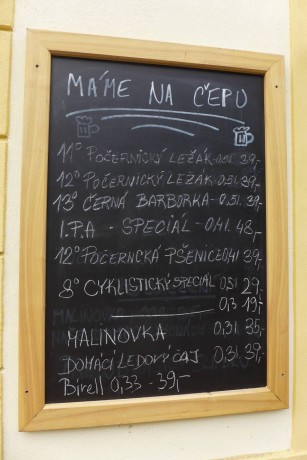 MÁME NA ČEPU
11° POČERNICKÝ LEŽÁK-0,5l 39,-
12° POČERNICKÝ LEŽÁK-0,5l 39,-
13° ČERNÁ BARBORKA-0,5l 39,-
I.P.A - SPECIÁL - 0,4l 48,-
12° POČERNICKÁ PŠENICE 0,4l 39,-
8° CYKLISTICKÝ SPECIÁL 0,5l 29,-
0,3 19,-
MALINOVKA 0,3l 35,-
DOMÁCÍ LEDOVÝ ČAJ 0,3l 39,-
Birell 0,33 - 39,-